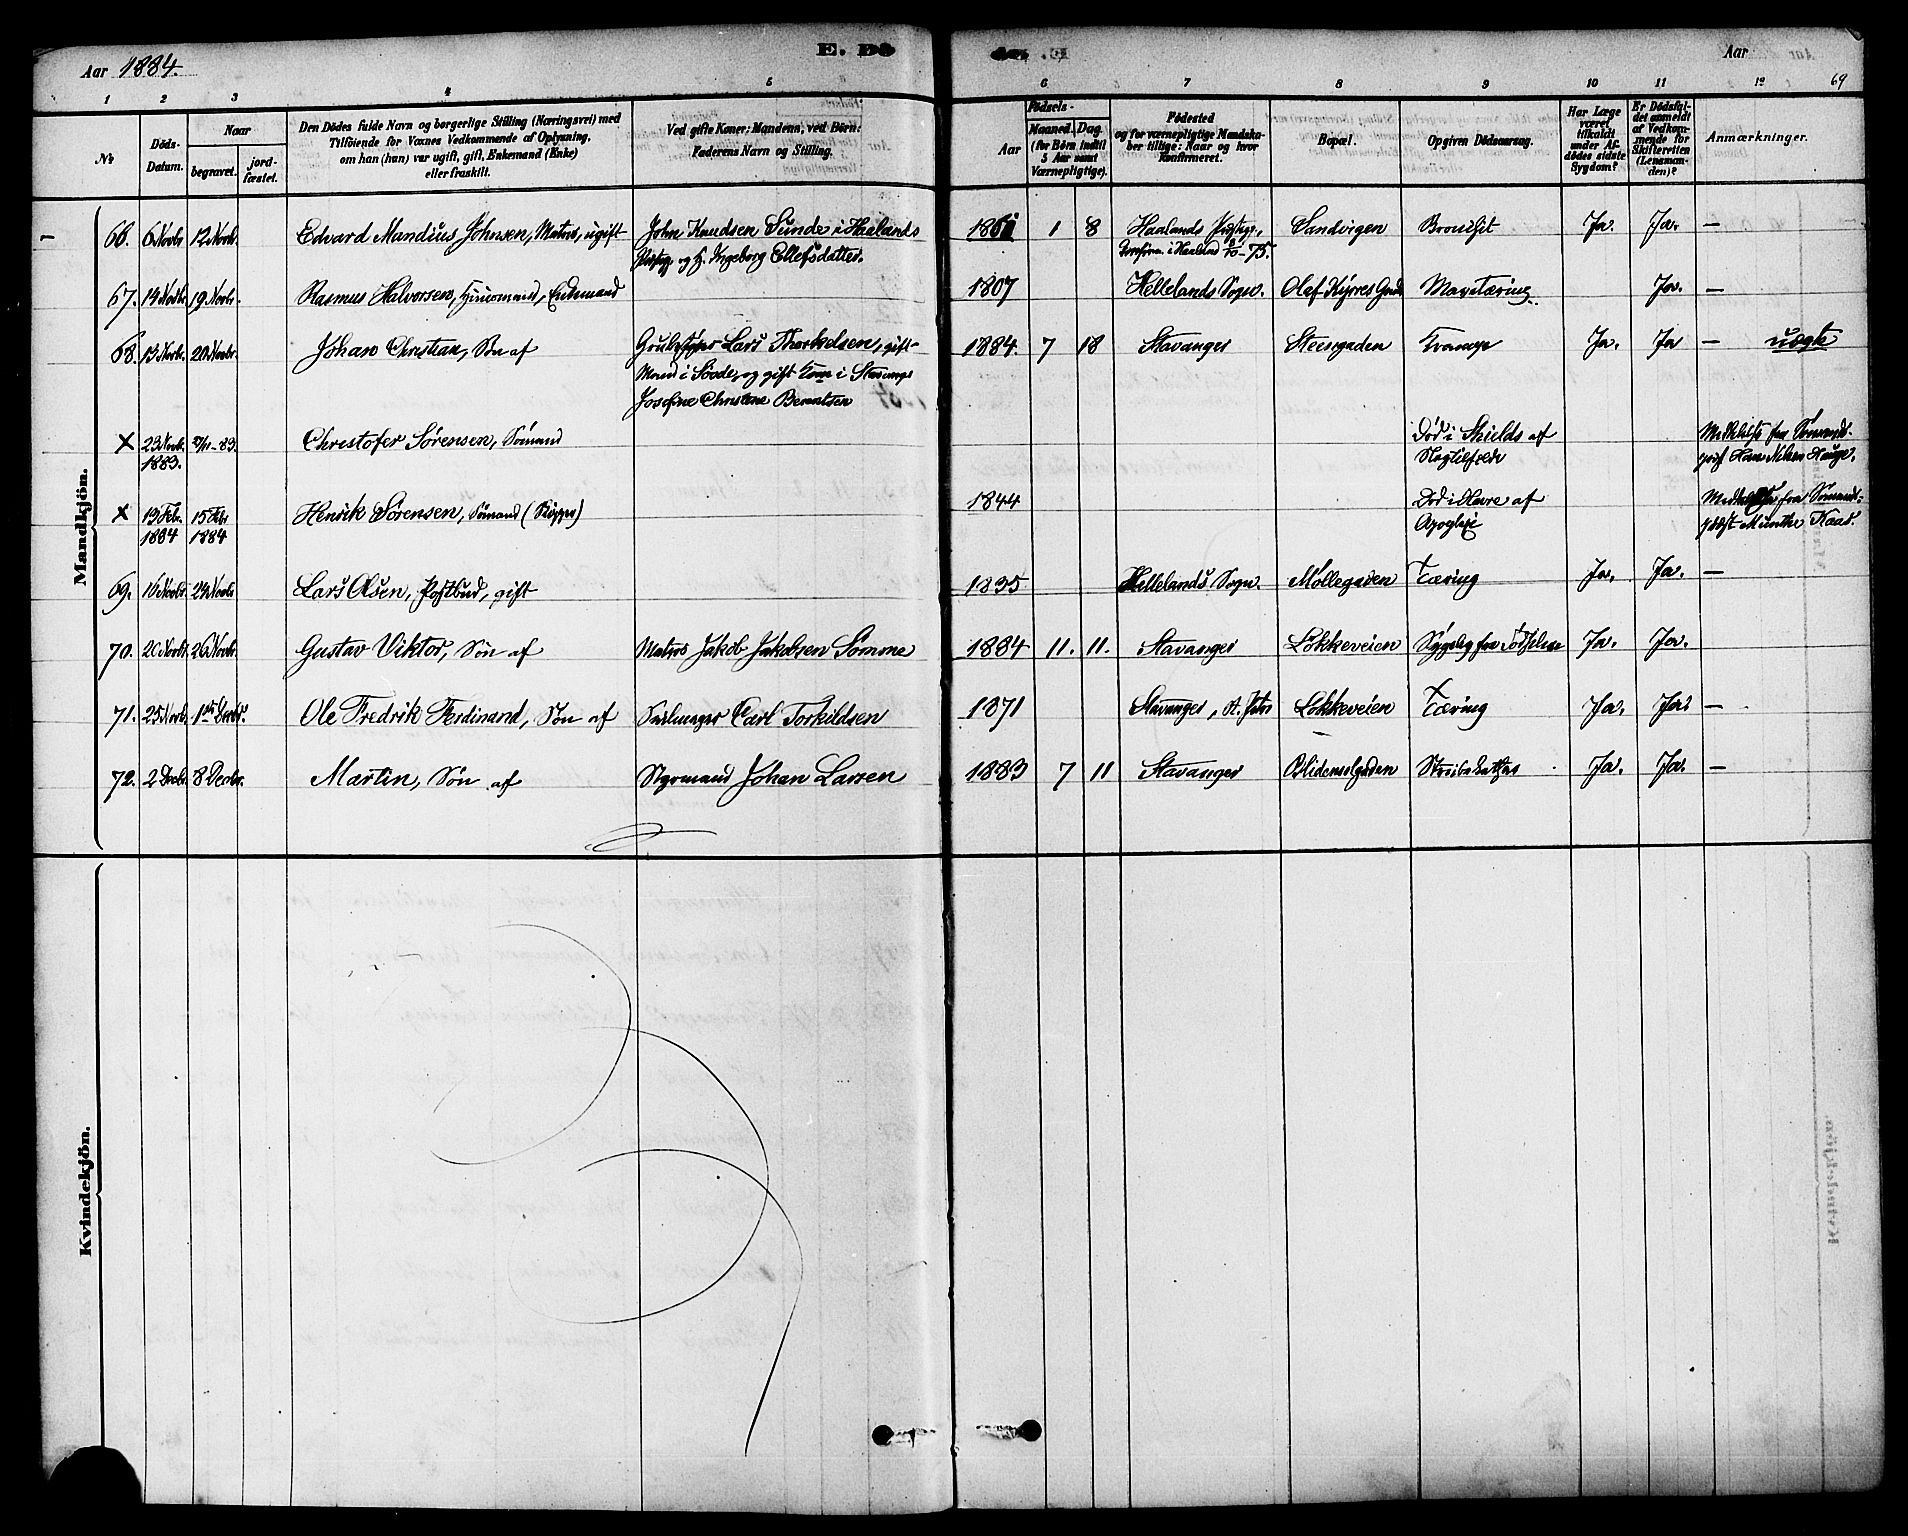 Aar 1884.
E. Dö
E.
Aar
69
1 2 3 4 5 6 7 8 9 10 11 12
№
Döds-Datum.
Naar
begravet.
jord-fæstet.
Den Dödes fulde Navn og borgerlige Stilling (Næringsvei) med
Tilföiende for Voxnes Vedkommende af Oplysning,
om han (hun) var ugift, gift, Enkemand (Enke)
eller fraskilt.
Ved gifte Koner: Mandens, ved Börn:
Faderens Navn og Stilling.
Födsels-
Aar
Maaned. Dag.
(for Börn indtil
5 Aar samt
Værnepligtige).
Födested
og for værnepligtige Mandska-
ber tillige: Naar og hvor
konfirmeret.
Bopæl.
Opgiven Dödsaarsag.
Har Læge
været
tilkaldt
under Af-
dödes sidste
Sygdom?
Er Dödsfal-
det anmeldt
af Vedkom-
mende for
Skifteretten
(Lensman-
den)?
Anmærkninger.
Mandkjön.
66. 6 Novbr 12 Novbr. Edvard Mandius Johnsen, Matros, ugift John Knudsen Sunde i Haalands 1 8 Haalands Sandvigen Ja Ja. —
og H. Ingeborg Ellefsdatter. i Haaland 75.
67. 14 Novbr 19 Novbr. Rasmus Halvorsen, Enkemand 1807 Hellelands Sogn. Olaf Kyrres Gade Mavetæring. Ja. —
68. 13 Novbr. 20 Novbr. Johan Christian, Søn af Lars Thorkelsen, gift- 1884. 7 18 Stavanger Steensgaden Krampe Ja. Ja — uægte
Mand i og gift Kone i Stavanger
Josefine Christine Berentsen
× 23 Novbr. 1883. 83. Christofer Sørensen, Sømand Død i Shields af
Slagtilfælde
Meddelelse fra Sømands-
præst Hans Nilsen Hauge.
× 13 Febr. 1884 15 Febr 1884 Henrik Sørensen, Sømand (Skipper) 1844 Død i Havre af
Apoplexi
Meddelelse fra Sømands-
præst Munthe Kaas.
69. 16 Novbr. 24 Novbr Lars Olsen, Postbud, gift 1835 Hellelands Sogn. Møllegaden Tæring Ja. Ja. —
70. 20 Novbr. 26 Novbr. Gustav Viktor, Søn af Matros Jakob Jakobsen Sømme 1884 11. 11. Stavanger Løkkeveien Sygelig fra Fødselen Ja. Ja.
71. 25 Novb. 1ste Decbr. Ole Fredrik Ferdinand, Søn af Carl Torkildsen 1871 Stavanger, St. Petri Løkkeveien Tæring Ja. Ja. —
72. 2 Decbr. 8 Decbr. Martin, Søn af Styrmand Johan Larsen 1883 7 11 Stavanger Blidensolgaden Ja. Ja. —
Kvindekjön.